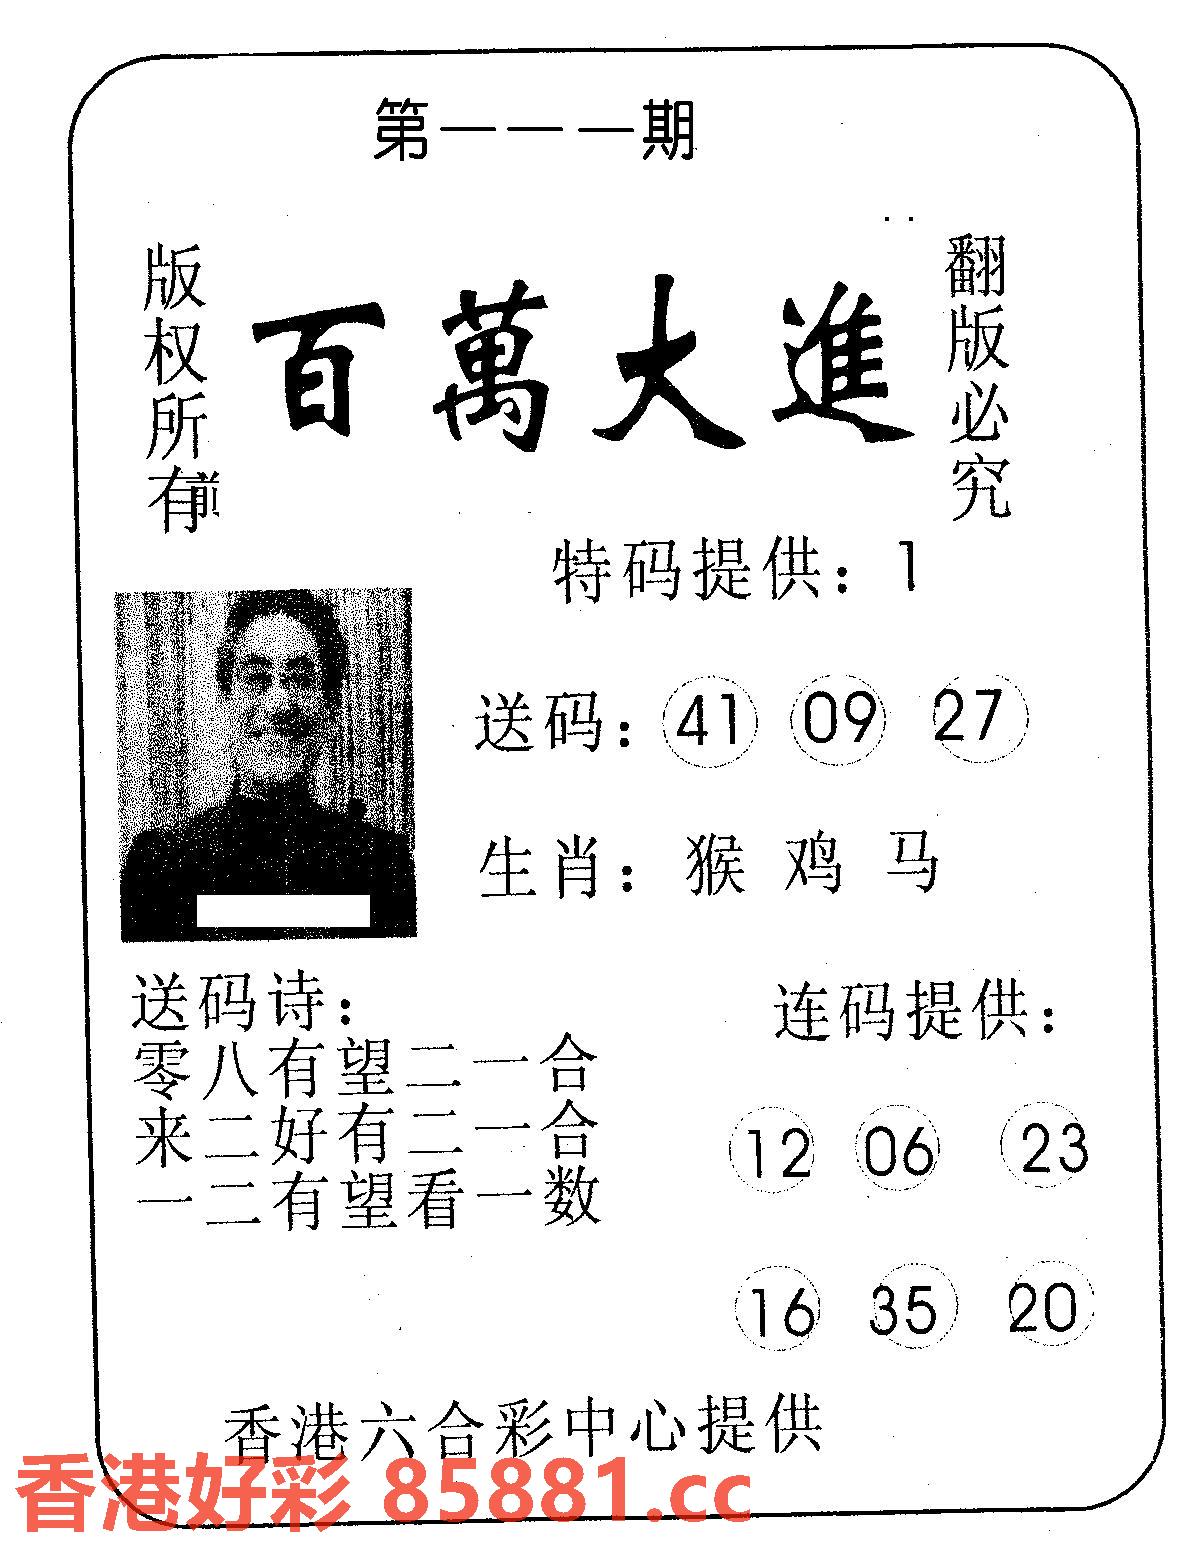 第一一一期
版权所有
百萬大進
翻版必究
特码提供：1
送码：41 09 27
生肖：猴 鸡 马
送码诗：
零八有望二一合
来二好有二一合
一二有望看一数
连码提供：
12 06 23
16 35 20
香港六合彩中心提供
香港好彩 85881.cc